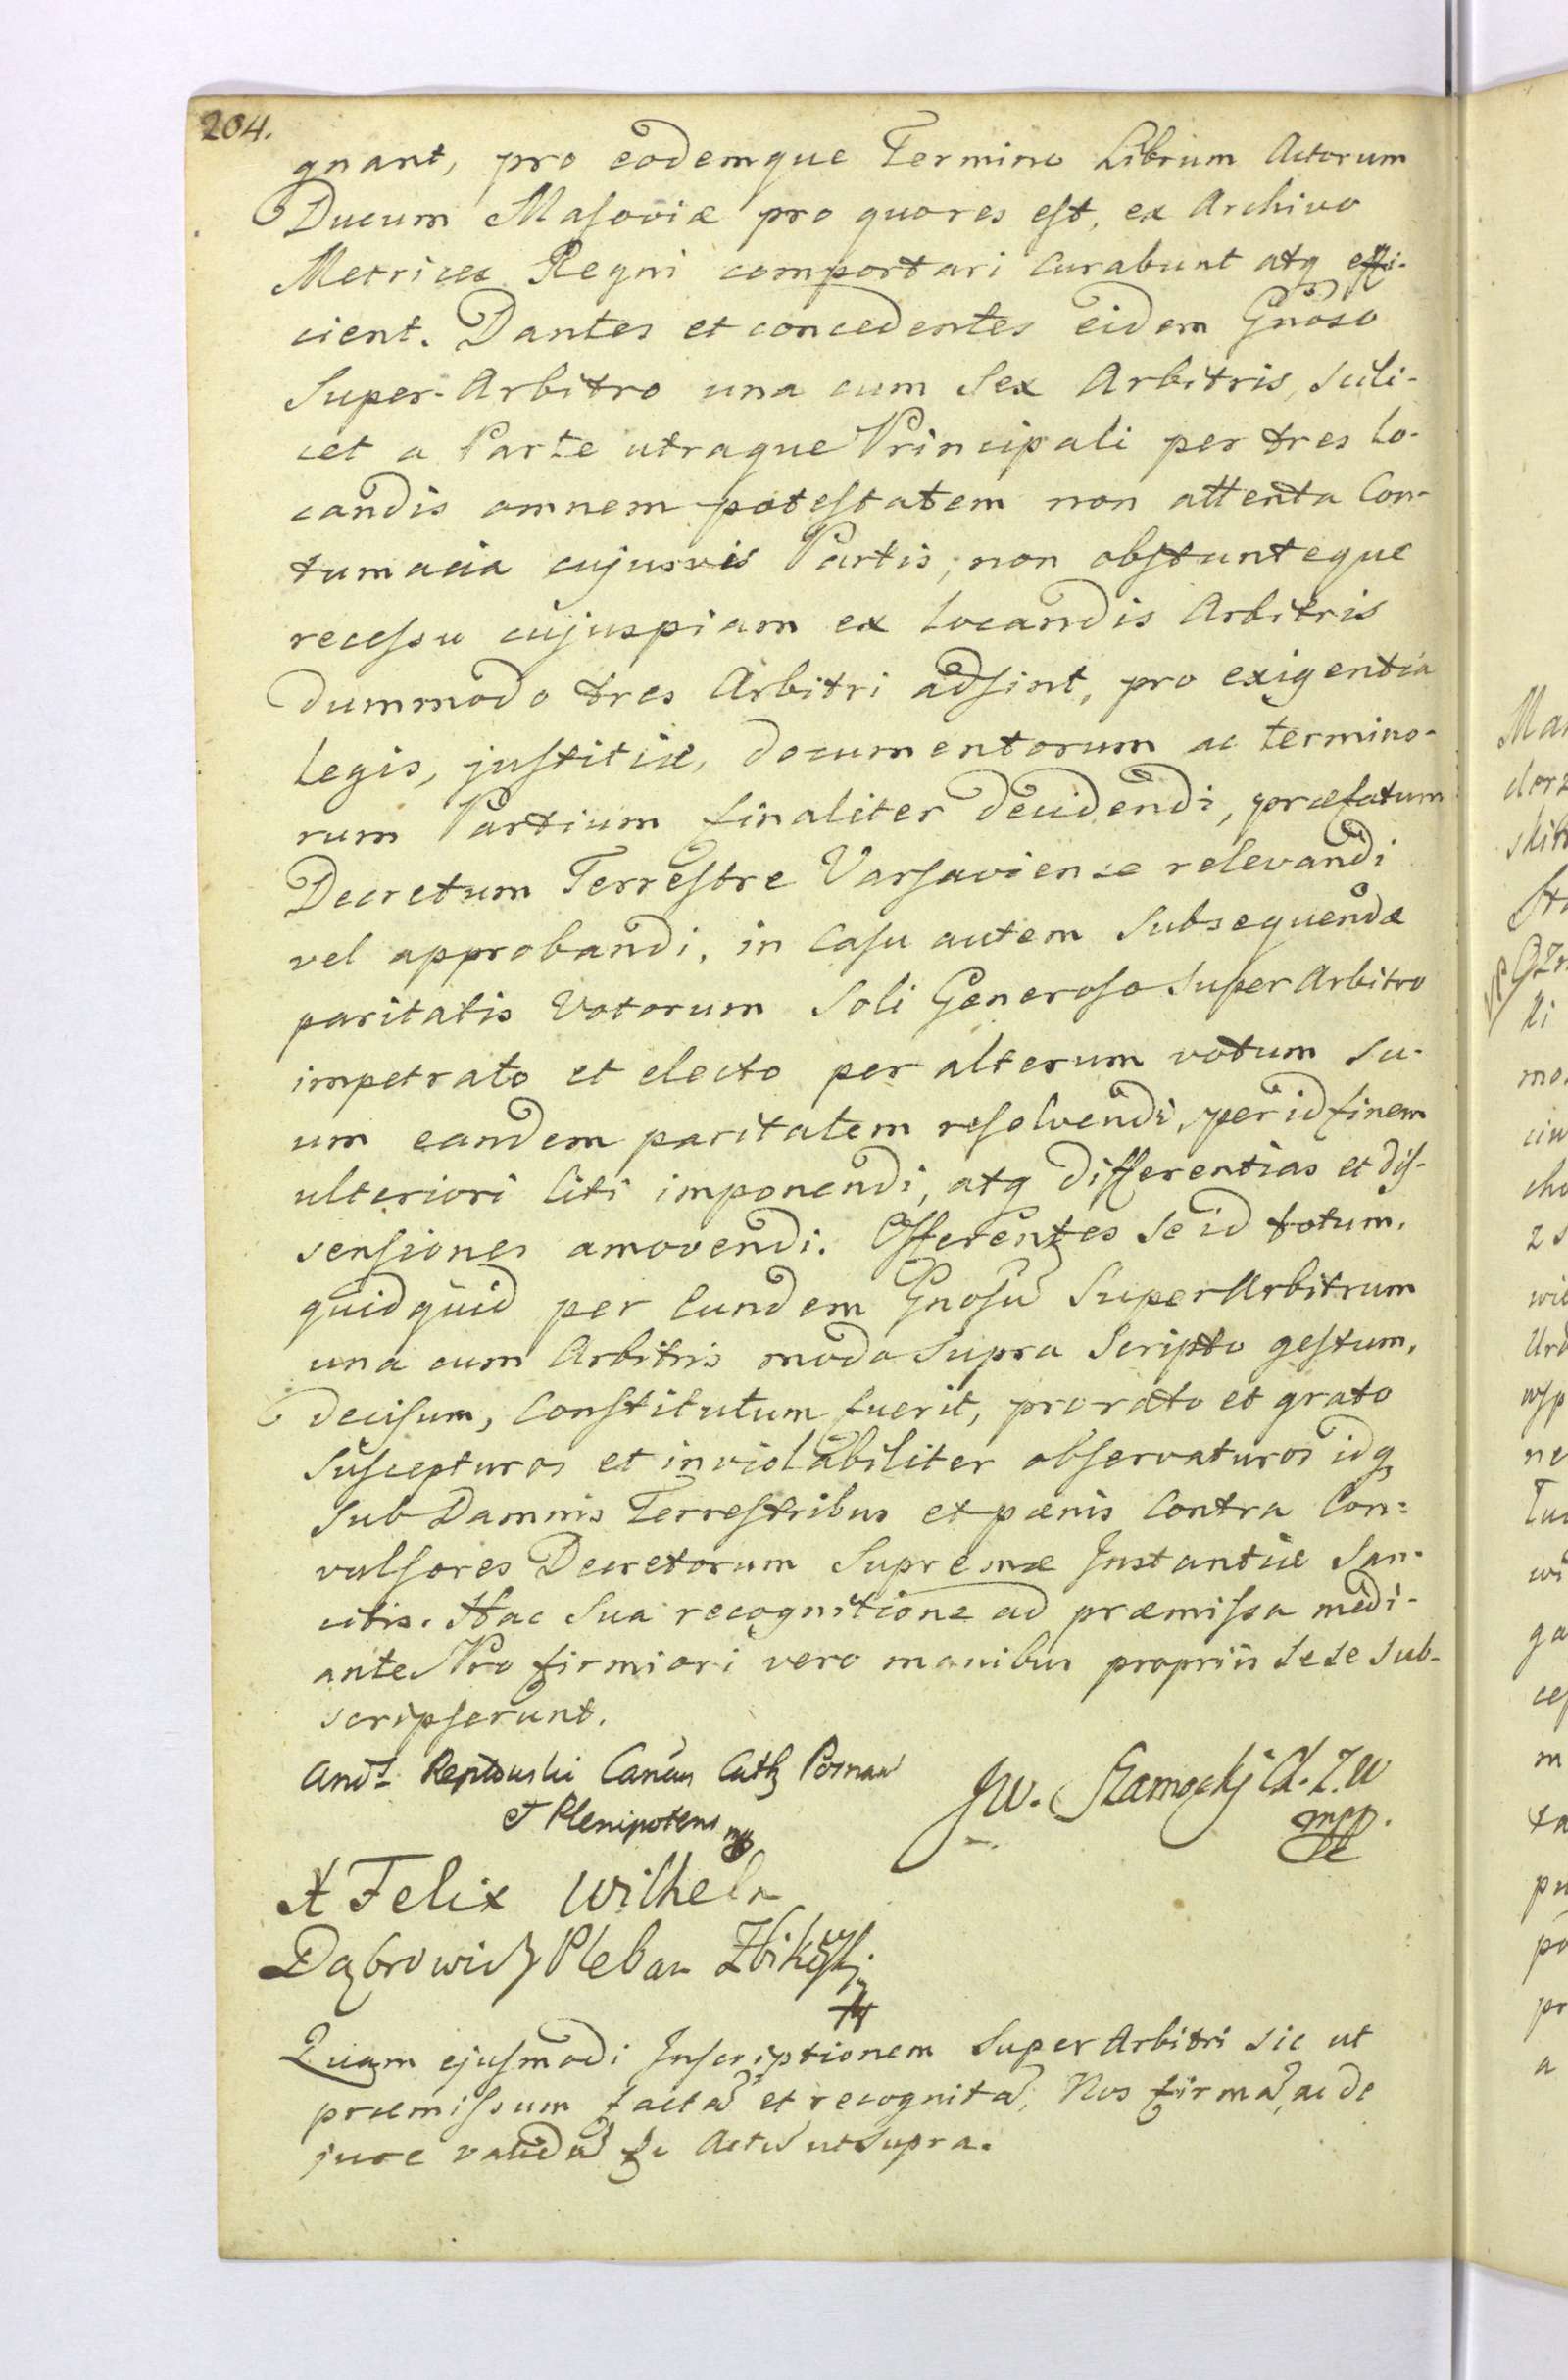 204.
gnant, pro eodemque Termino Librum Actorum
Ducum Masoviæ pro quo res est, ex Archivo
Metrices Regni comportari curabunt atq effi-
cient. Dantes et concedentes eidem Gnoso
Super-Arbitro una cum Sex Arbitris, scili-
cet a Parte utraque Principali per tres lo-
candis omnem potestatem non attenta Con-
tumacia cujusvis Partis, non obstanteque
recessu cujuspiam ex locandis Arbitris
dummodo tres Arbitri adsint, pro exigentia
Legis, justitiæ, documentorum ac termino-
rum Partium finaliter decidendi, præfatum
Decretum Terrestre Varsaviense relevandi
vel approbandi, in casu autem subsequendæ
paritatis Votorum soli Generoso Super Arbitro
impetrato et electo per alterum votum su-
um eandem paritatem resolvendi, per id finem
ulteriori liti imponendi, atq differentias et dis-
sensiones amovendi. Offerentes se id totum,
quidquid per eundem Gnosu Super Arbitrum
una cum Arbitris modo supra scripto gestum,
decisum, constitutum fuerit, pro rato et grato
suscepturos et inviolabiliter observaturos idq
sub Damnis Terrestribus et pœnis contra Con=
vulsores Decretorum Supremæ Instantiæ san-
citis. Hac sua recognitione ad præmissa medi-
ante Pro firmiori vero manibus propriis sese sub-
scripserunt.
And: Reptowski Canus Cath Posnan
et Plenipotens mp
JW. Szamocki
mpp.
X Felix Wilhelm
Dąbrowicz Pleban Zbikski
Quam ejusmodi Inscriptionem Super Arbitri sic ut
præmissum facta et recognita, Nos firma, ac de
jure valida &c Actu ut supra.